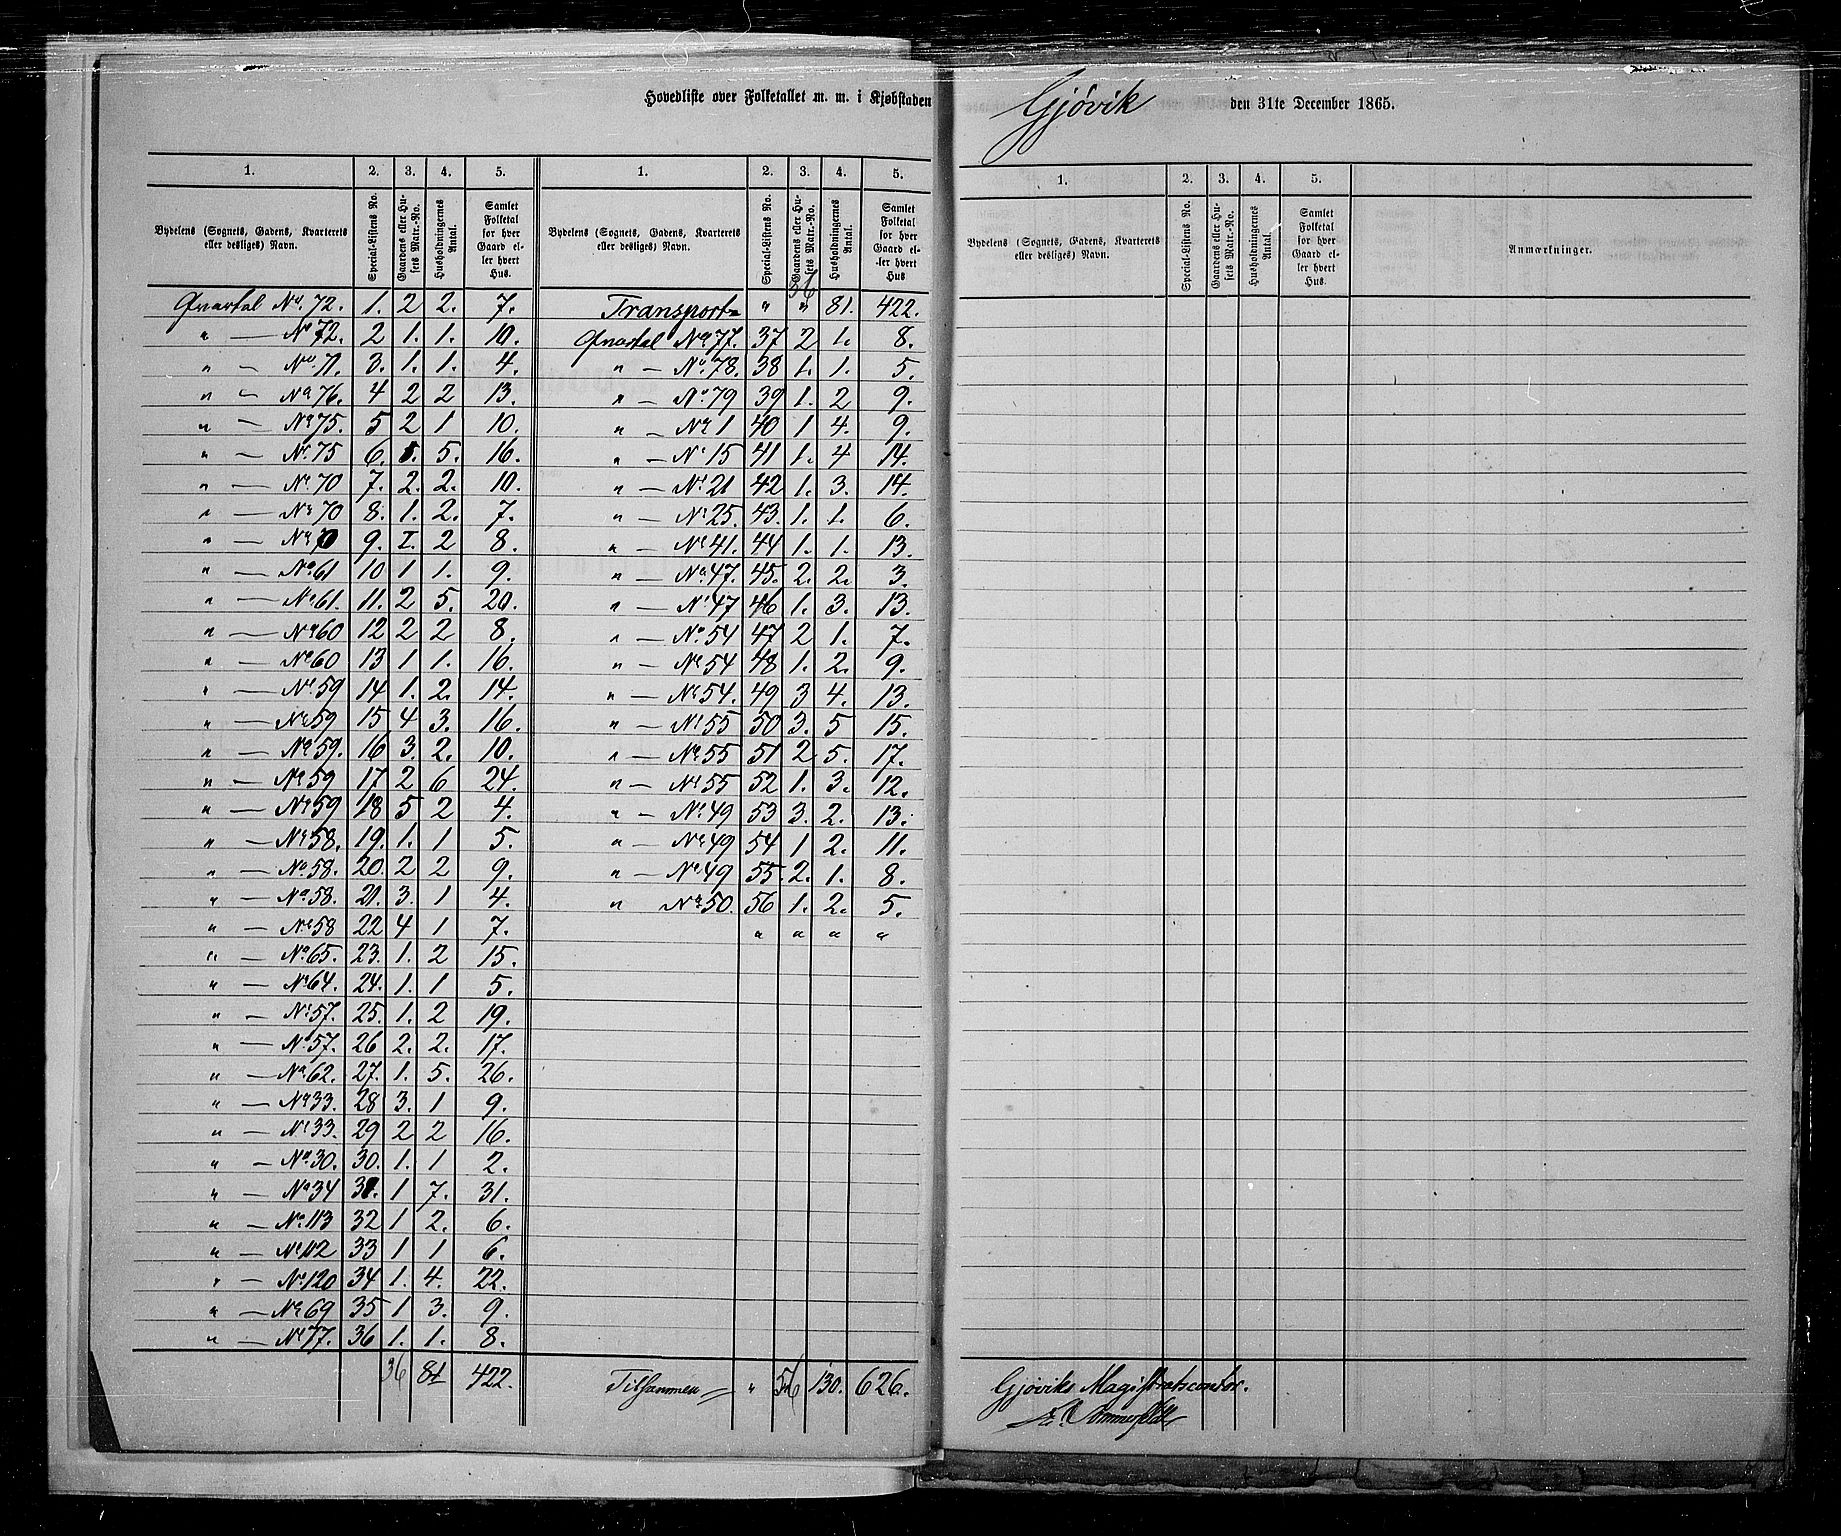 Hovedliste over Folketallet m. m. i Kjøbstaden Gjövik den 31te December 1865.
1. 2. 3. 4. 5. 1. 2. 3. 4. 5.
Bydelens (Sognets, Gadens, Kvarterets eller desliges) Navn. Special-Listens No. Gaardens eller Husets Matr.-No. Husholdningernes Antal. Samlet Folketal for hver Gaard eller hvert Hus. Bydelens (Sognets, Gadens, Kvarterets eller desliges) Navn. Special-Listens No. Gaardens eller Husets Matr.-No. Husholdningernes Antal. Samlet Folketal for hver Gaard eller hvert Hus
Qvartal No. 72. 1. 2 2. 7.
" — No 72. 2 1. 1. 10.
" — No. 71. 3. 1. 1. 4.
" — No 76. 4 2 2 13.
" — No 75. 5 2 1 10.
" — No. 75 6. 1. 5. 16.
" — No. 70 7. 2. 2. 10.
" — No 70 8. 1. 2. 7.
" — No 70 9. 1. 2 8.
" — No. 61 10 1 1. 9.
" — No. 61. 11. 2 5. 20.
" — No 60 12 2 2 8.
" — No 60 13 1 1. 16.
" — No. 59 14 1. 2. 14.
" — No 59 15 4 3. 16.
" — No 59. 16 3. 2. 10.
" — No 59 17 2 6 24.
" — No 59 18 5 2 4.
" — No 58. 19. 1. 1 5.
" — No. 58. 20. 2 2 9.
" — No. 58. 21. 3. 1 4.
" — No 58 22 4 1 7.
" — No. 65. 23. 1. 2 15.
" — No 64. 24. 1. 1 5.
" — No 57. 25. 1. 2 19.
" — No 57. 26 2. 2. 17.
" — No. 62. 27. 1. 5. 26.
" — No 33. 28 3. 1 9.
" — No 33. 29 2 2 16.
" — No. 30. 30. 1. 1 2.
" — No 34 31. 1 7. 31.
" — No. 113 32 1 2. 6.
" — No 112 33 1 1 6.
" — No. 120 34 1. 4. 22.
" — No 69 35 1 3. 9.
" — No 77. 36 1. 1. 8.
36 81 422.
36
Transport " " 81. 422.
Qvartal No. 77. 37 2 1. 8.
" — No. 78. 38 1. 1. 5.
" — No. 79 39 1. 2 9.
" — No 1 40 1 4. 9.
" — No 15 41 1. 4 14.
" — No 21 42 1. 3. 14.
" — No 25. 43. 1. 1. 6.
" — No 41. 44 1. 1. 13.
" — No. 47. 45. 2. 2. 3.
" — No 47 46 1. 3. 13.
" — No. 54 47 2 1. 7.
" — No 54 48 1. 2. 9.
" — No 54. 49 3 4. 13.
" — No 55 50 3. 5 15.
" — No 55 51 2 5. 17.
" — No 55 52 1. 3. 12.
" — No. 49 53 3. 2. 13.
" — No 49 54 1 2. 11.
" — No. 49 55. 2. 1. 8.
" No 50. 56 1. 2. 5.
" " " "
Tilsammen " 56 130. 626.
1. 2. 3. 4. 5.
Bydelens (Sognets, Gadens, Kvarterets eller desliges) Navn. Special-Listens No. Gaardens eller Husets Matr.-No. Husholdningernes Antal. Samlet Folketal for hver Gaard eller hvert Hus. Anmærkninger.
Gjöviks Magistratscontor.